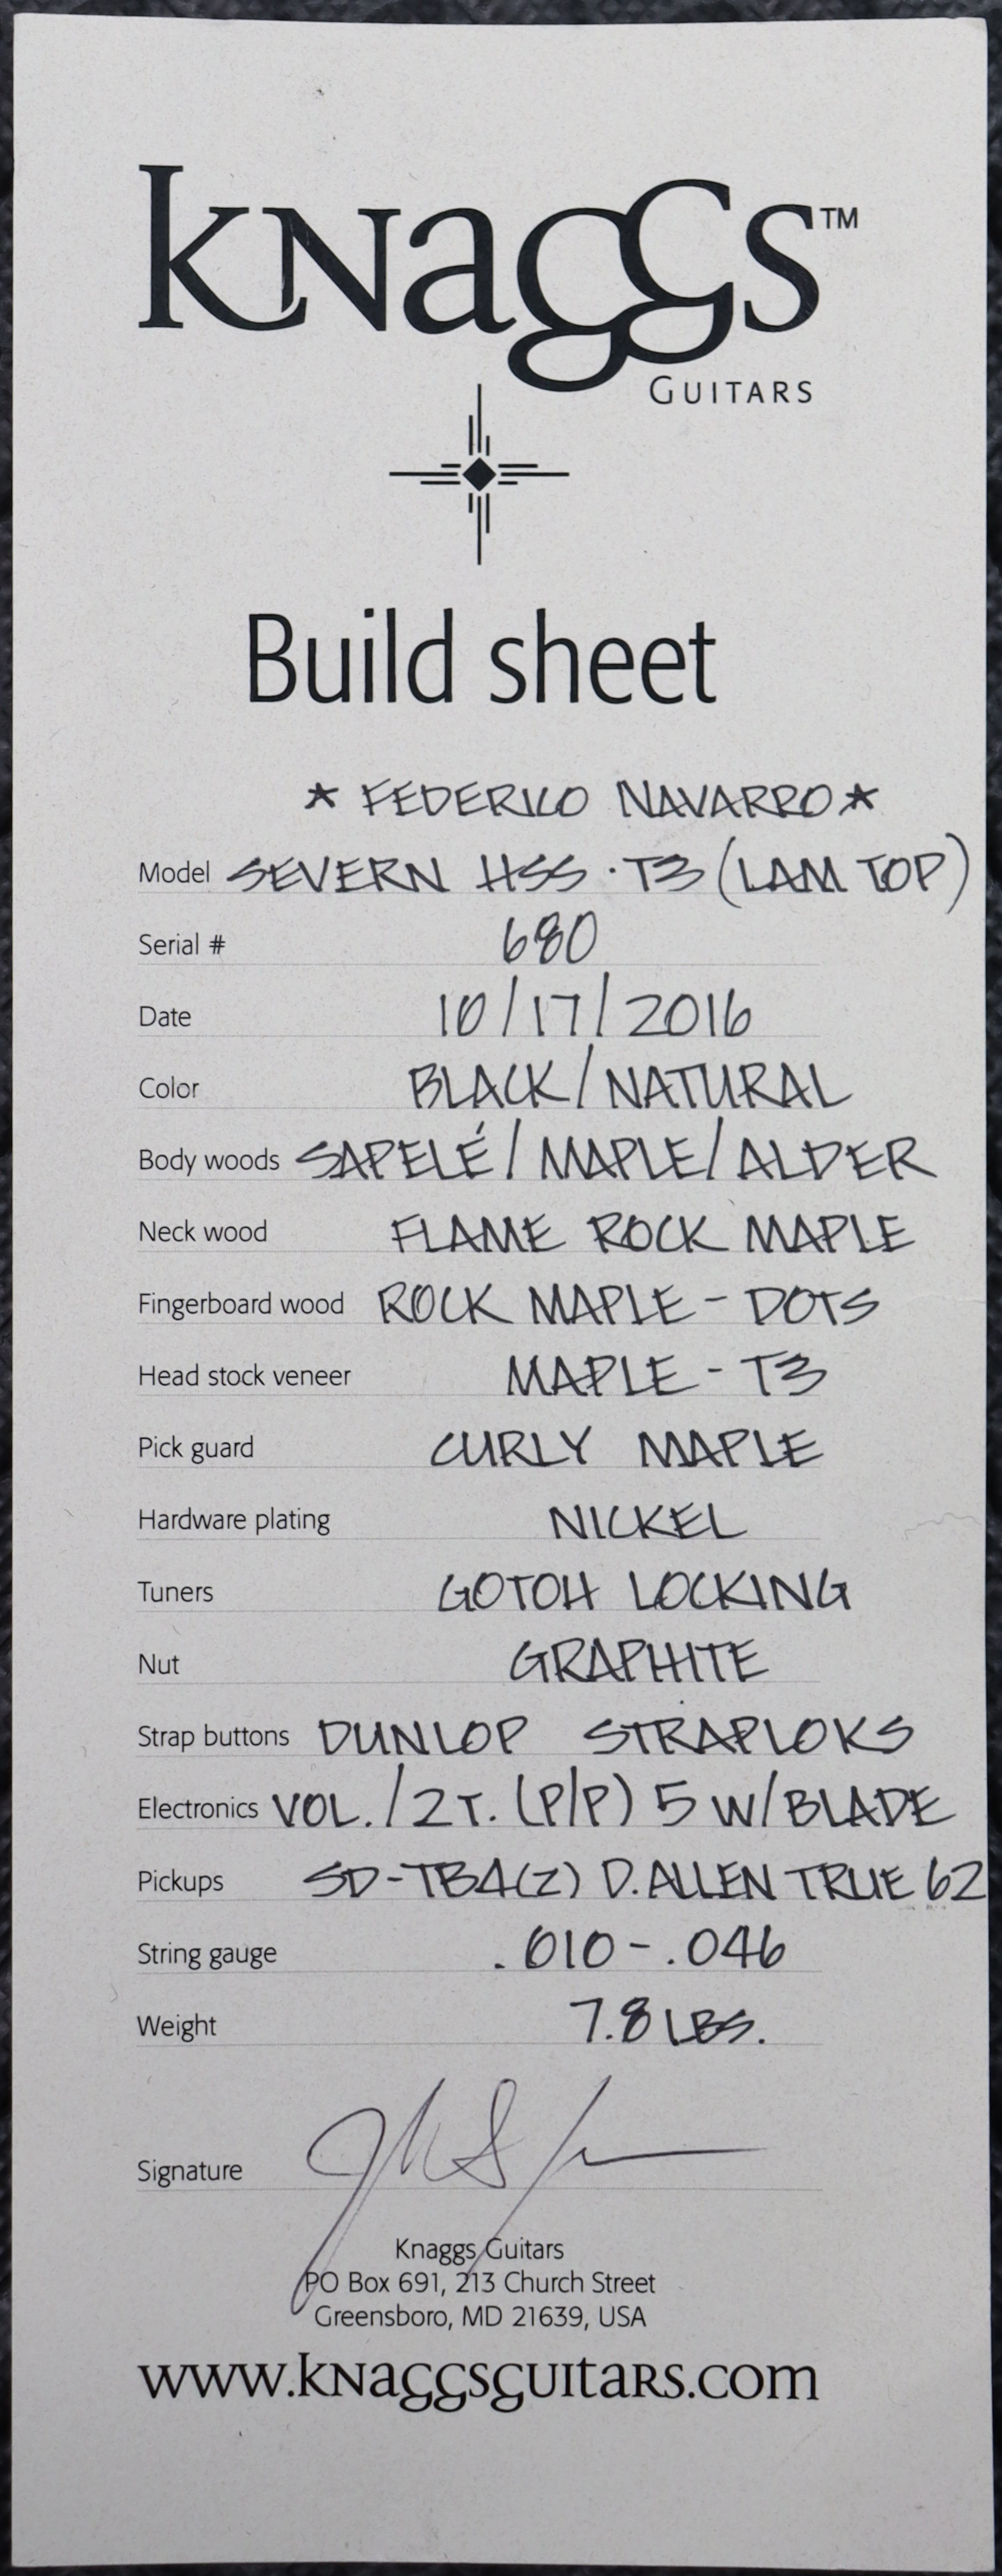 KNaGGS™
GUITARS
Build sheet
* FEDERICO NAVARRO *
Model SEVERN HSS · T3 (LAM TOP)
Serial # 680
Date 10/17/2016
Color BLACK/NATURAL
Body woods SAPELÉ/MAPLE/ALDER
Neck wood FLAME ROCK MAPLE
Fingerboard wood ROCK MAPLE - DOTS
Head stock veneer MAPLE - T3
Pick guard CURLY MAPLE
Hardware plating NICKEL
Tuners GOTOH LOCKING
Nut GRAPHITE
Strap buttons DUNLOP STRAPLOKS
Electronics VOL./2T. (P/P) 5 W/BLADE
Pickups SD-TB4(Z) D.ALLEN TRUE 62
String gauge .010-.046
Weight 7.8 LBS.
Signature
Knaggs Guitars
PO Box 691, 213 Church Street
Greensboro, MD 21639, USA
www.KNaGGSGUITARS.com